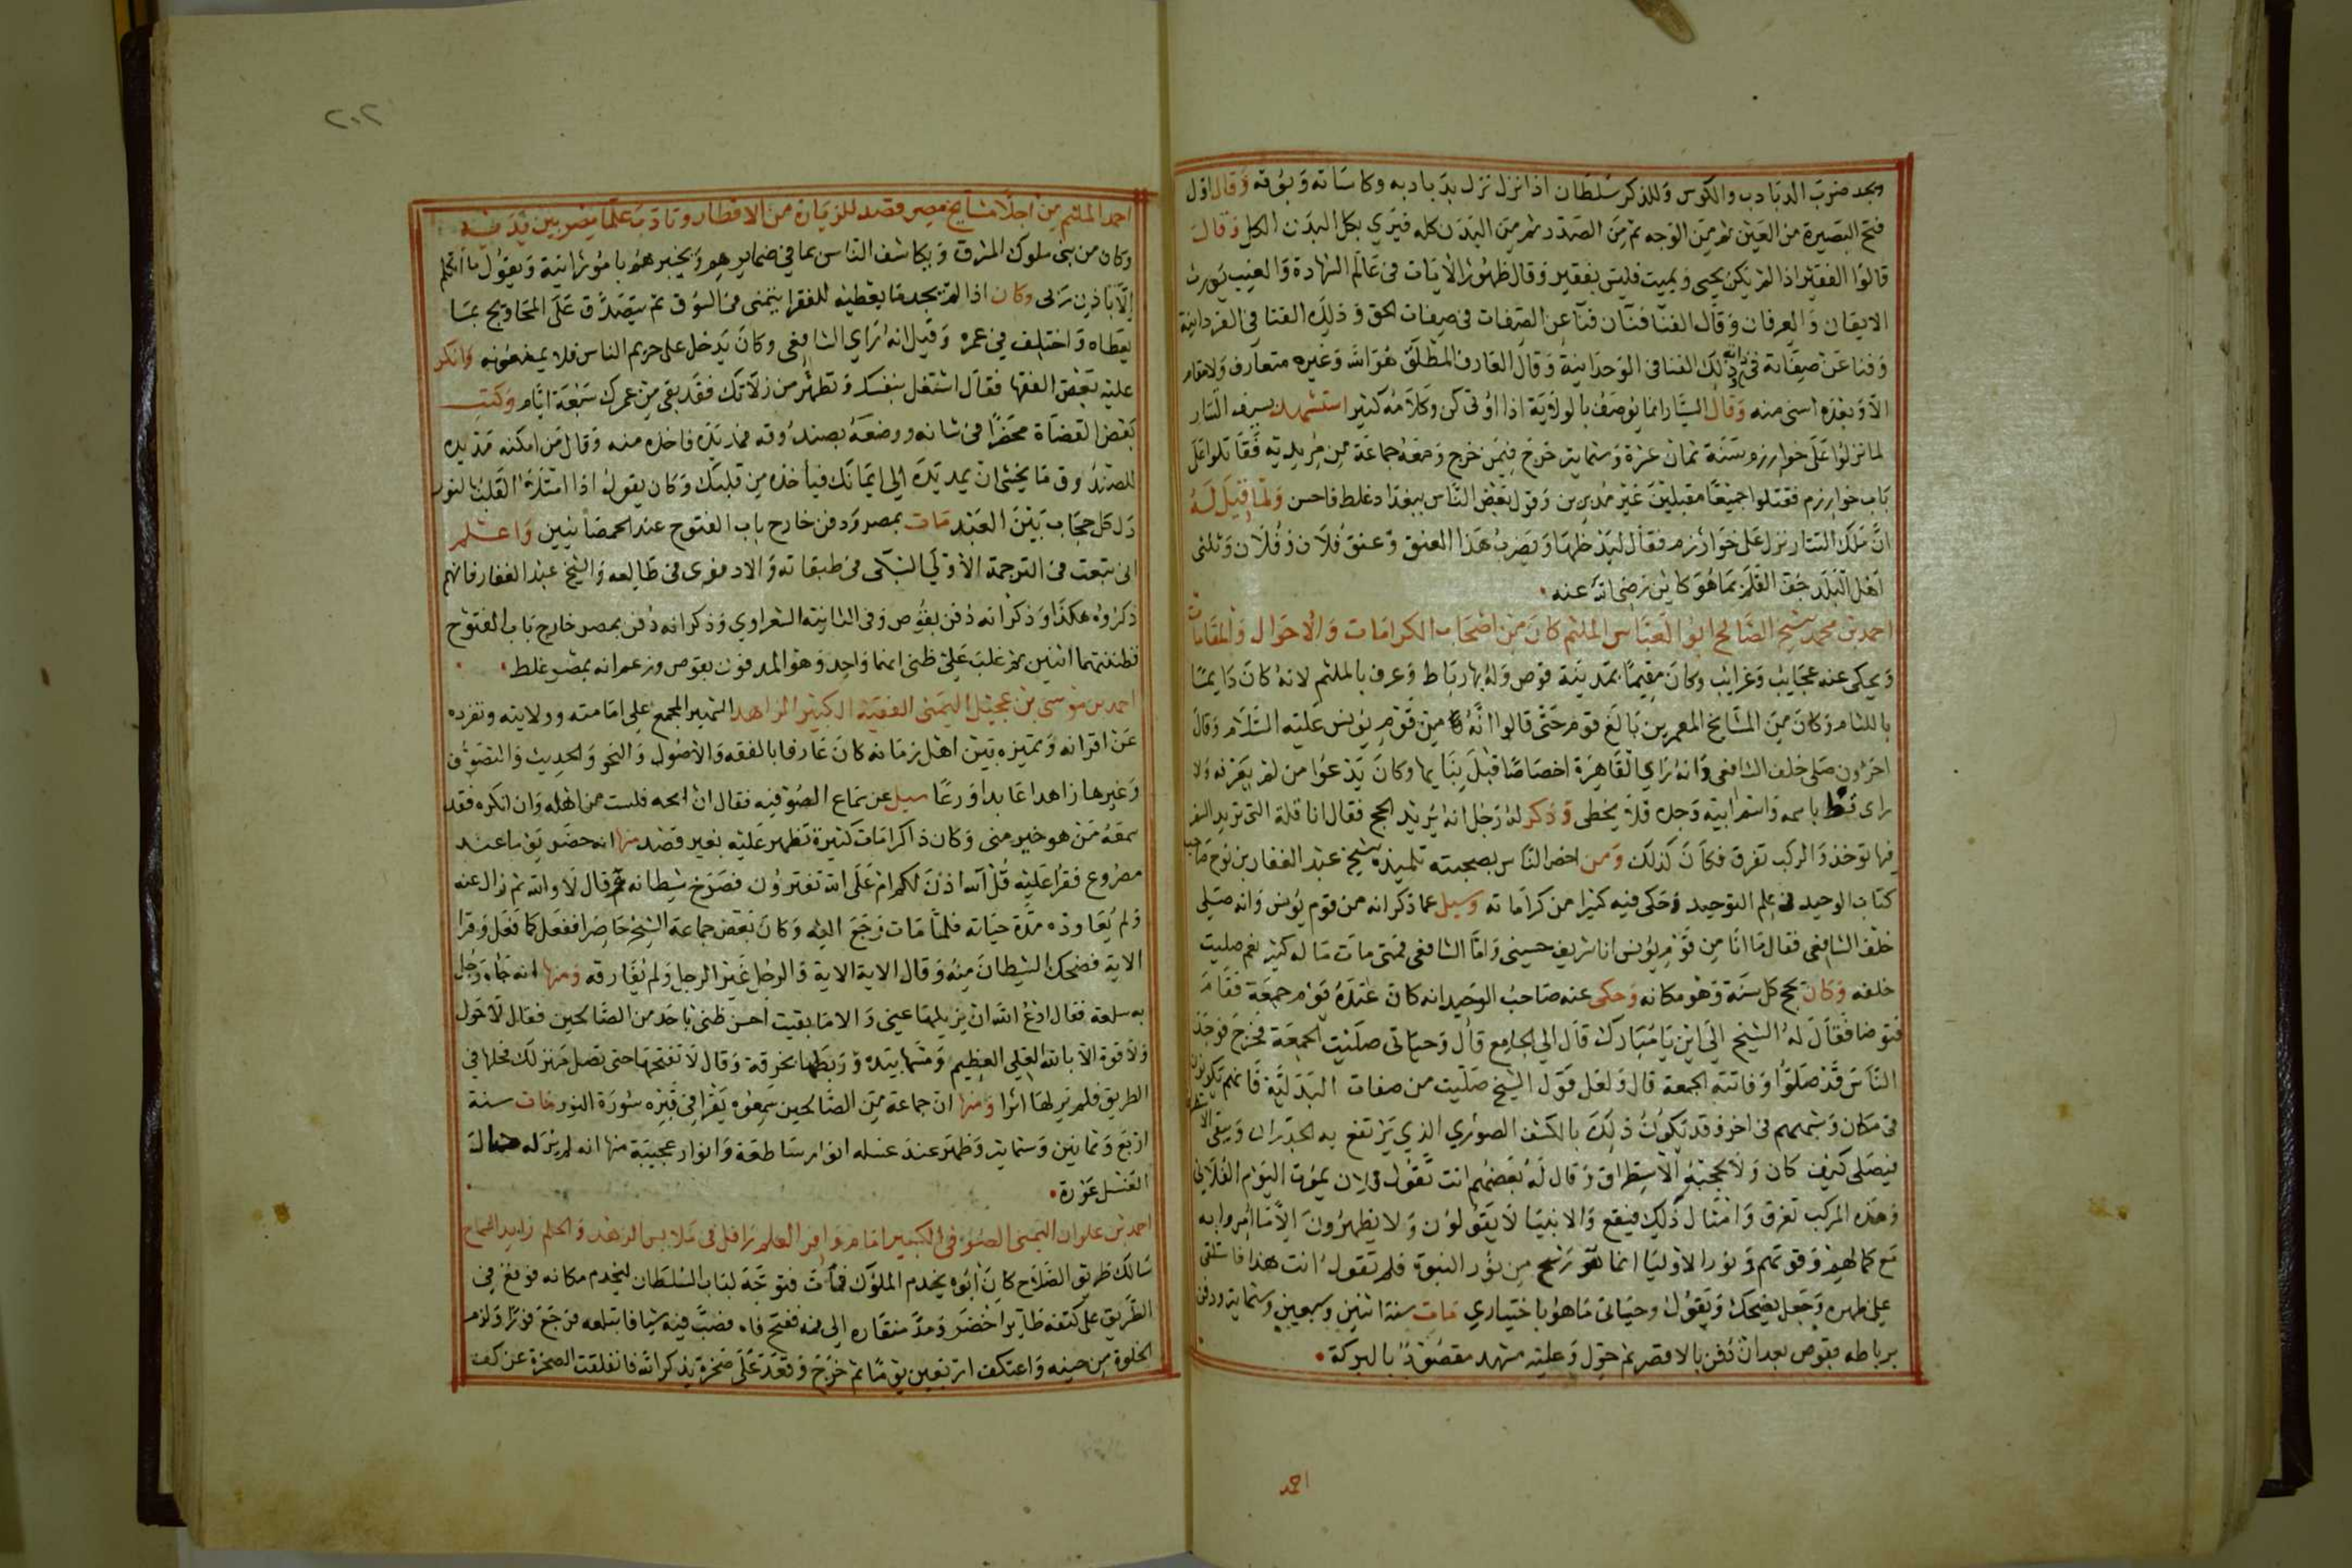 ويجد ضرب الدبادب والكوس وللذكر سلطان اذا نزل نزل بدبادبه وكاساته وبوقه وقال اول
فتح البصيرة من العين ثم من الوجه ثم من الصدر ثم من البدن كله فيري بكل البدن الكل وقال
قالوا الفقير اذا لم يكن يحيى ويميت فليس بفقير وقال ظهور الايات في عالم الشهادة والغيب يورث
الايقان والعرفان وقال الفنا فنآن فنا عن الصفات في صفات الحق وذلك الفنا في الفردانية
وفنا عن صفاته في ذاته وذلك الفنا في الوحدانية وقال العارف المطلق هو الله وغيره متعارف ولا مقام
الا وبعده اسنى منه وقال السيار انما يوصف بالولاية اذا اوتي كن وكلامه كثير استشهد بسيف التتار
لما نزلوا على خوارزم سنة ثمان عشرة وستماية خرج فيمن خرج ومعه جماعة من مريديه فقاتلوا على
باب خوارزم فقتلوا جميعا مقبلين غير مدبرين وقول بعض الناس ببغداد غلط فاحش ولما قيل له
ان ملك التتار نزل على خوارزم فقال ليدخلها ويضرب هذا العنق وعنق فلان وفلان وثلثى
اهل البلد جف القلم بما هو كاين رضي الله عنه
احمد بن محمد شيخ الصالح ابو العباس الملثم كان من اصحاب الكرامات والاحوال والمقامات
ويحكى عنه عجايب وغرايب وكان مقيما بمدينة قوص وله بها رباط وعرف بالملثم لانه كان دايما
باللثام وكان من المشايخ المعمرين بالغ قوم حتى قالوا انه من قوم يونس عليه السلام وقال
اخرون صلى خلف الشافعي وانه راي القاهرة اخصاصا قبل بنايها وكان يدعوا من لم يعرفه ولا
راى قط باسمه واسم ابيه وجده فلا يخطى وذكر له رجل انه يريد الحج فقال انا قلة التى تريد السفر
فيها توخذ والمركب تغرق فكان كذلك ومن اخص الناس بصحبته تلميذه شيخ عبد الغفار بن نوح صاحب
كتاب الوحيد في علم التوحيد وحكى فيه كثيرا من كراماته وسيل عما ذكر انه من قوم يونس وانه صلى
خلف الشافعي فقال ما انا من قوم يونس انا شريف حسيني واما الشافعي فمتى مات ما له كثير نعم صليت
خلفه وكان يحج كل سنة وهو مكانه وحكى عنه صاحب الوحيد انه كان عنده يوم جمعة فقام
فتوضا فقال له الشيخ الى اين يا مبارك قال الي الجامع قال وحياتى صليت الجمعة فخرج فوجد
الناس قد صلوا وفاتته الجمعة قال ولعل قول الشيخ صليت من صفات البدلية فانهم يكونون
في مكان وشبههم في اخر وقد تكون ذلك بالكشف الصوري الذي يرتفع به الجدران ويبقى الاستطراق
فيصلى كيف كان ولا يحجبه الاستطراق وقال له بعضهم انت تقول فلان يموت اليوم الفلاني
وهذه المركب تغرق وامثال ذلك فيقع والانبيا لا يقولون ولا يظهرون الا ما امروا به
مع كمالهم وقوتهم ونور الاوليا انما هو رشح من نور النبوة فلم تقول انت هذا فاستلقى
على ظهره وجعل يضحك ويقول وحياتي ما هو باختياري مات سنة اثنين وسبعين وستماية ودفن
برباطه بقوص بعد ان دفن بالاقصر ثم حول وعليه مشهد مقصود بالبركة
احمد
٢٠٢
احمد الملثم من اجلا مشايخ مصر قصد للزيارة من الاقطار وتادب علما مصر بين يديه
وكان من بنى ملوك المشرق ويكاشف الناس بما في ضمايرهم ويخبرهم بامور اتية ويقول ما اتكلم
الا باذن ربى وكان اذا لم يجد ما يعطيه للفقرا يتمنى من السوق ثم يتصدق على المحاويج بما
يعطاه واختلف في عمره وقيل انه راي الشافعي وكان يدخل على حريم الناس فلا يمنعونه وانكر
عليه بعض الفقها فقال اشتغل بنفسك وتطهر من زلاتك فقد بقى من عمرك سبعة ايام وكتب
بعض القضاة محضرا في شانه ووضعه بصندوقه فمد يده فاخذه منه وقال من امكنه مد يده
للصندوق ما يخشى ان يمد يده الى ايمانك فياخذه من قلبك وكان يقول اذا امتلا القلب بالنور
زل كل حجاب بين العبد مات بمصر ودفن خارج باب الفتوح عند الحمصانيين واعلم
انى تبعت في الترجمة الاولى السبكى في طبقاته والادفوى في طالعه والشيخ عبد الغفار فانهم
ذكروه هكذا وذكر انه دفن بقوص وفى الثانية الشعراوي وذكر انه دفن بمصر خارج باب الفتوح
فظننتهما اثنين ثم غلب على ظنى انهما واحد وهو المدفون بقوص وزعم انه بمصر غلط
احمد بن موسى بن عجيل اليمنى الفقيه الكبير الزاهد الشهير المجمع على امامته وولايته وتفرده
عن اقرانه وتميزه بين اهل زمانه كان عارفا بالفقه والاصول والنحو والحديث والتصوف
وغيرها زاهدا عابدا ورعا سيل عن سماع الصوفية فقال ان ابحه فلست من اهله وان انكره فقد
سمعه من هو خير منى وكان ذا كرامات كثيرة تظهر عليه بغير قصد منها انه حضر يوما عند
مصروع فقرا عليه قل الله اذن لكم ام على الله تفترون فصرخ شيطانه ثم قال لا والله ثم زال عنه
ولم يعاوده مدة حياته فلما مات رجع اليه وكان بعض جماعة الشيخ حاضرا ففعل كما فعل وقرا
الاية فضحك الشيطان منه وقال الاية الاية والرجل غير الرجل ولم يفارقه ومنها انه جاه رجل
به سلعة فقال ادع الله ان يزيلها عني والا ما بقيت احسن ظنى باحد من الصالحين فقال لا حول
ولا قوة الا بالله العلي العظيم ومسها بيده وربطها بخرقة وقال لا تفتحها حتى تصل منزلك فحلها في
الطريق فلم ير لها اثرا ومنها ان جماعة من الصالحين سمعوه يقرا في قبره سورة النور مات سنة
اربع وثمانين وستماية وظهر عند غسله انوار ساطعة وانوار عجيبة منها انه لم ير له حالة
الغسل عورة
احمد بن علوان اليمنى الصوفي الكبير امام وافر العلم رافل في ملابس الزهد والحلم زايد السماح
سالك طريق الصلاح كان ابوه يخدم الملوك فمات فتوجه لباب السلطان ليخدم مكانه فوقع في
الطريق على كتفه طاير اخضر ومد منقاره الى فمه ففتح فاه فصب فيه شيا فابتلعه فرجع فورا ولزم
الخلوة من حينه واعتكف اربعين يوما ثم خرج وقعد على صخرة يذكر الله فانفلقت الصخرة عن كف